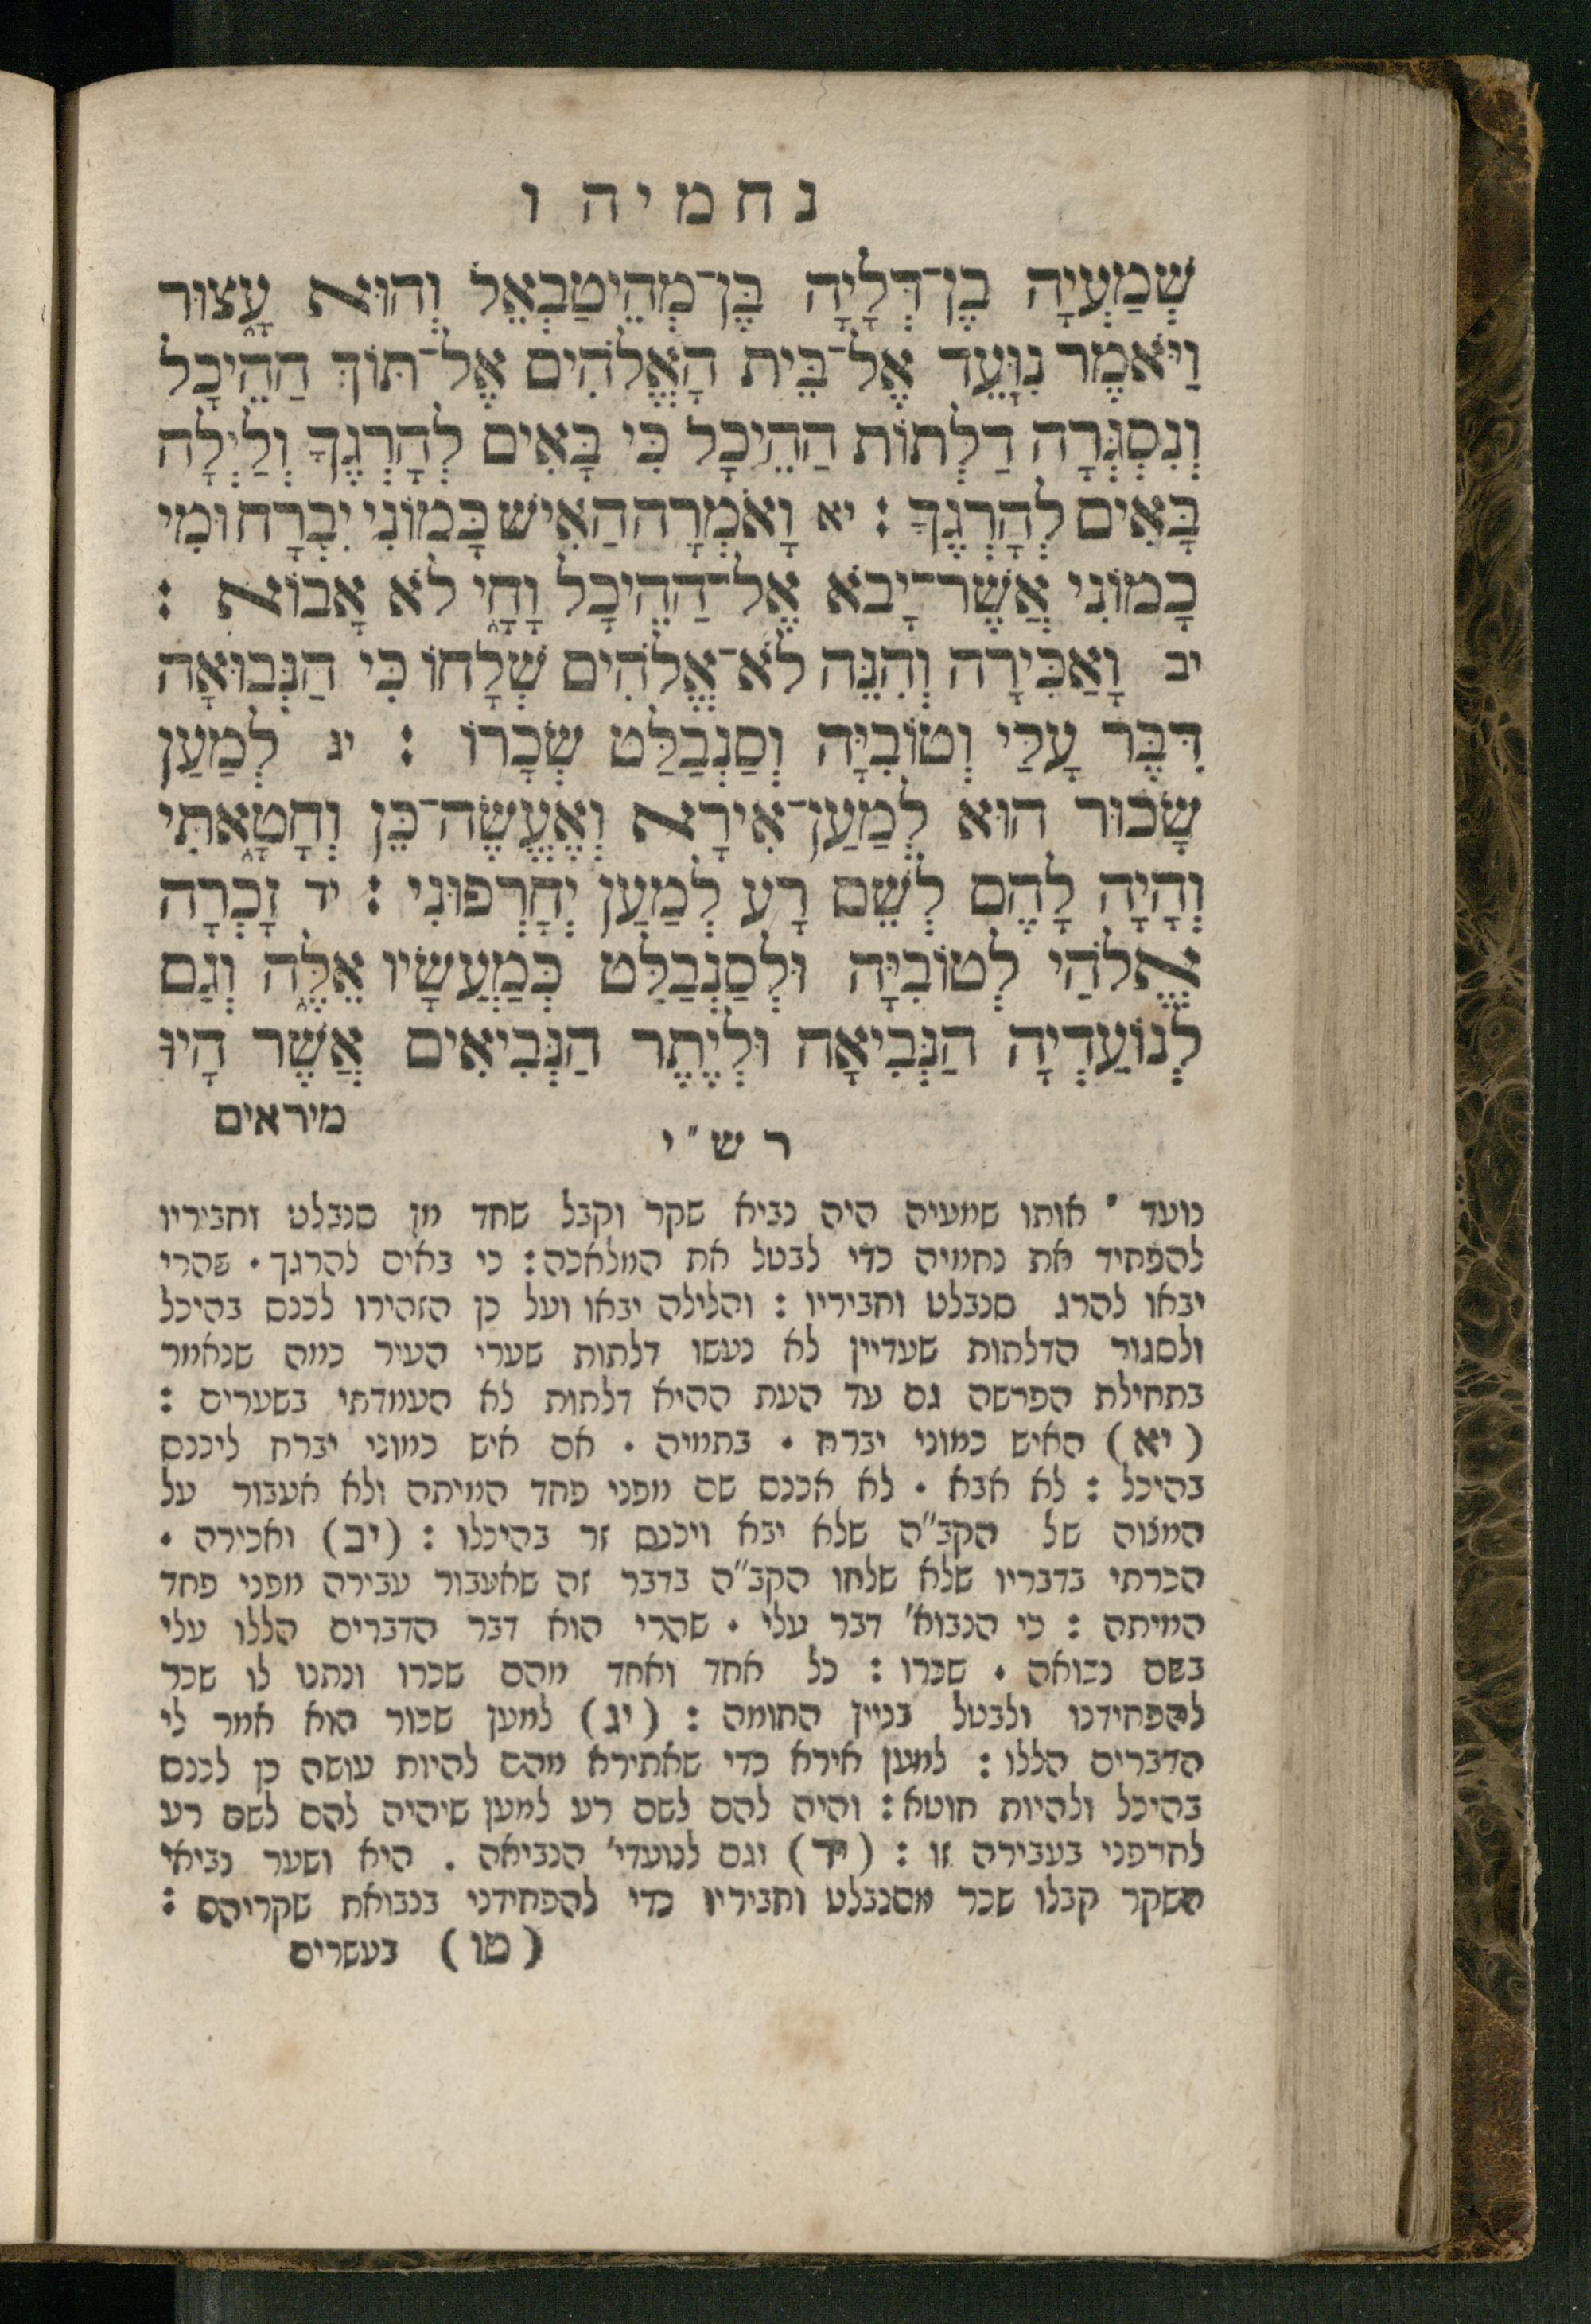 נחמיה ו
שְׁמַעְיָה בֶן־דְּלָיָה בֶּן־מְהֵיטַבְאֵל וְהוּא עָצוּר
וַיֹּאמֶר נִוָּעֵד אֶל־בֵּית הָאֱלֹהִים אֶל־תּוֹךְ הַהֵיכָל
וְנִסְגְּרָה דַלְתוֹת הַהֵיכָל כִּי בָּאִים לְהָרְגֶךָ וְלַיְלָה
בָּאִים לְהָרְגֶךָ : יא וָאֹמְרָה הַאִישׁ כָּמוֹנִי יִבְרָח וּמִי
כָמוֹנִי אֲשֶׁר־יָבֹא אֶל־הַהֵיכָל וָחָי לֹא אָבוֹא :
יב וָאַכִּירָה וְהִנֵּה לֹא־אֱלֹהִים שְׁלָחוֹ כִּי הַנְּבוּאָה
דִּבֶּר עָלַי וְטוֹבִיָּה וְסַנְבַלַּט שְׂכָרוֹ : יג לְמַעַן
שָׂכוּר הוּא לְמַעַן־אִירָא וְאֶעֱשֶׂה־כֵּן וְחָטָאתִי
וְהָיָה לָהֶם לְשֵׁם רָע לְמַעַן יְחָרְפוּנִי : יד זָכְרָה
אֱלֹהַי לְטוֹבִיָּה וּלְסַנְבַלַּט כְּמַעֲשָׂיו אֵלֶּה וְגַם
לְנוֹעַדְיָה הַנְּבִיאָה וּלְיֶתֶר הַנְּבִיאִים אֲשֶׁר הָיוּ
מיראים
רש"י
נועד • אותו שמעיה היה נביא שקר וקבל שחד מן סנבלט וחביריו
להפחיד את נחמיה כדי לבטל את המלאכה: כי באים להרגך • שהרי
יבאו להרג סנבלט וחביריו : והלילה יבאו ועל כן הזהירו לכנס בהיכל
ולסגור הדלתות שעדיין לא נעשו דלתות שערי העיר כמה שנאמר
בתחילת הפרשה גם עד העת ההיא דלתות לא העמדתי בשערים :
(יא) האיש כמוני יברח • בתמיה • אם איש כמוני יברח ליכנס
בהיכל : לא אבא • לא אכנס שם מפני פחד המיתה ולא אעבור על
המצוה של הקב"ה שלא יבא ויכנס זר בהיכלו : (יב) ואכירה •
הכרתי בדבריו שלא שלחו הקב"ה בדבר זה שאעבור עבירה מפני פחד
המיתה : כי הנבוא' דבר עלי • שהרי הוא דבר הדברים הללו עלי
בשם נבואה • שכרו : כל אחד ואחד מהם שכרו ונתנו לו שכר
להפחידנו ולבטל בניין החומה : (יג) למען שכור הוא אמר לי
הדברים הללו : למען אירא כדי שאתירא מהם להיות עושה כן לכנס
בהיכל ולהיות חוטא: והיה להם לשם רע למען שיהיה להם לשם רע
לחרפני בעבירה זו : (יד) וגם לנועדי' הנביאה . היא ושער נביאי
השקר קבלו שכר מסנבלט וחביריו כדי להפחידני בנבואת שקריהם :
(טו) בעשרים